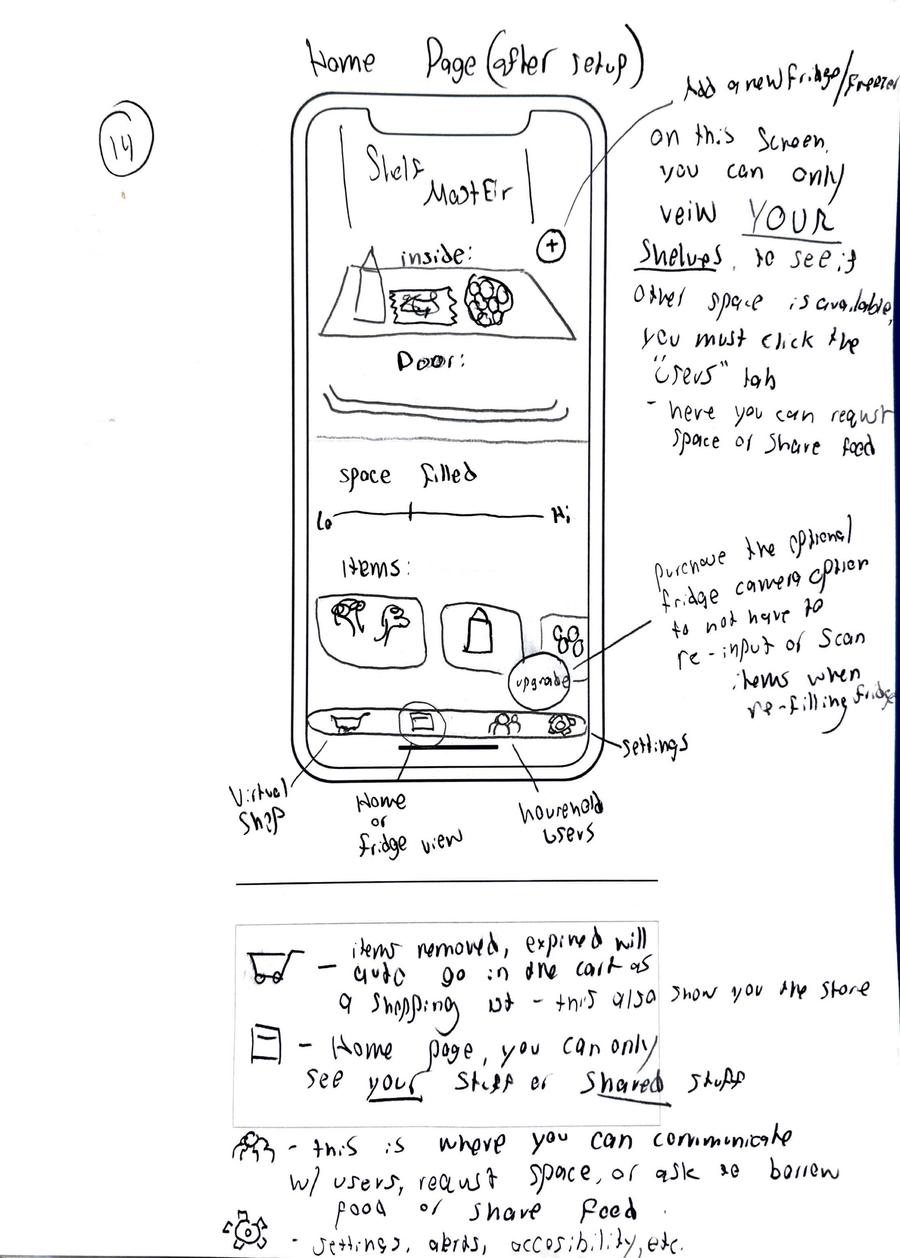 Home Page (after setup)
14
Add a new fridge/freezer
on this screen,
you can only
veiw YOUR
shelves, to see if
other space is available,
you must click the
"Users" tab
- here you can requst
space or share food
Shelf
MastEr
+
inside:
Door:
space filled
Lo
Hi
items:
upgrade
purchase the optional
fridge camera option
to not have to
re-input or scan
items when
re-filling fridge
settings
Virtual
Shop
Home
or
fridge view
household
users
- items removed, expired will
auto go in the cart as
a shopping list - this also show you the store
- Home page, you can only
see your stuff or shared stuff
- this is where you can communicate
w/ users, requst space, or ask to borrow
food or share food.
- settings, alerts, accosibility, etc.